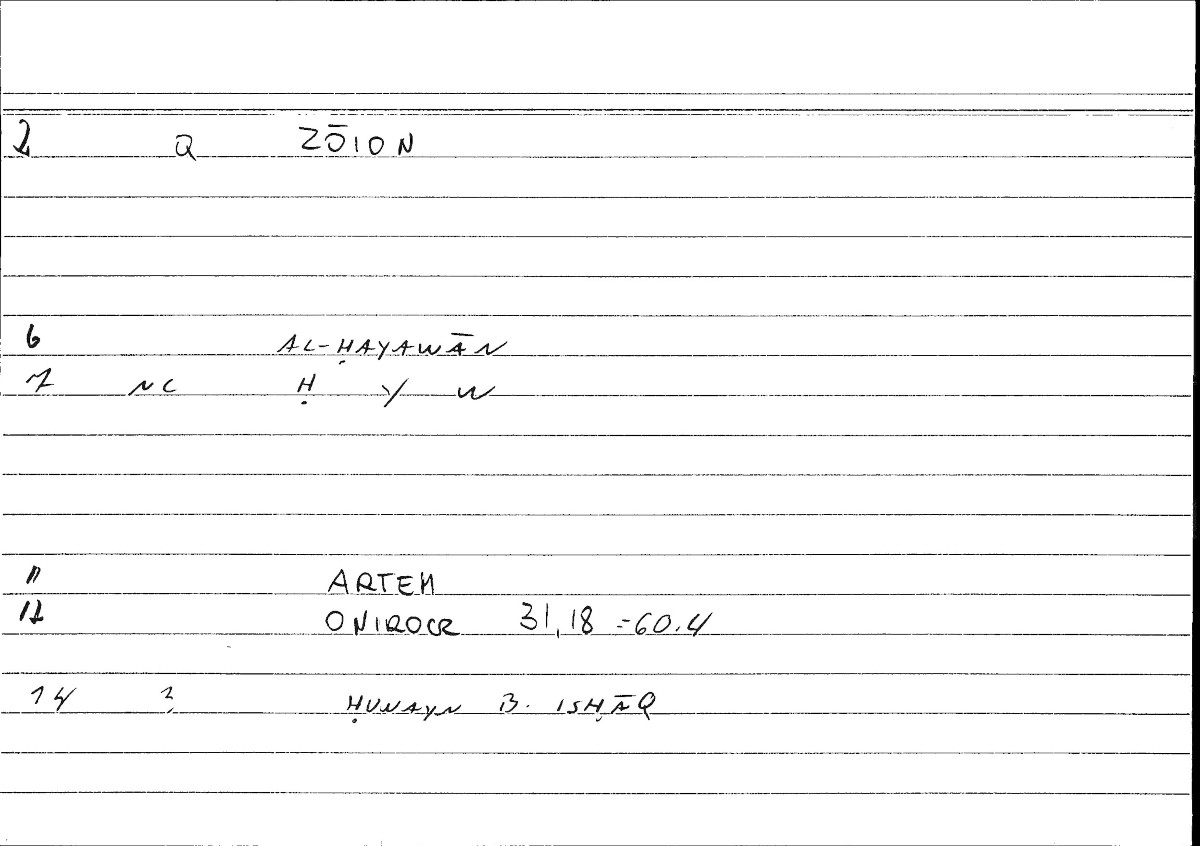 2 Q ZŌION
6 AL-ḤAYAWĀN
7 NC Ḥ Y W
11 ARTEM
12 ONIROCR 31,18 = 60.4
14 ? ḤUNAYN B. ISḤĀQ